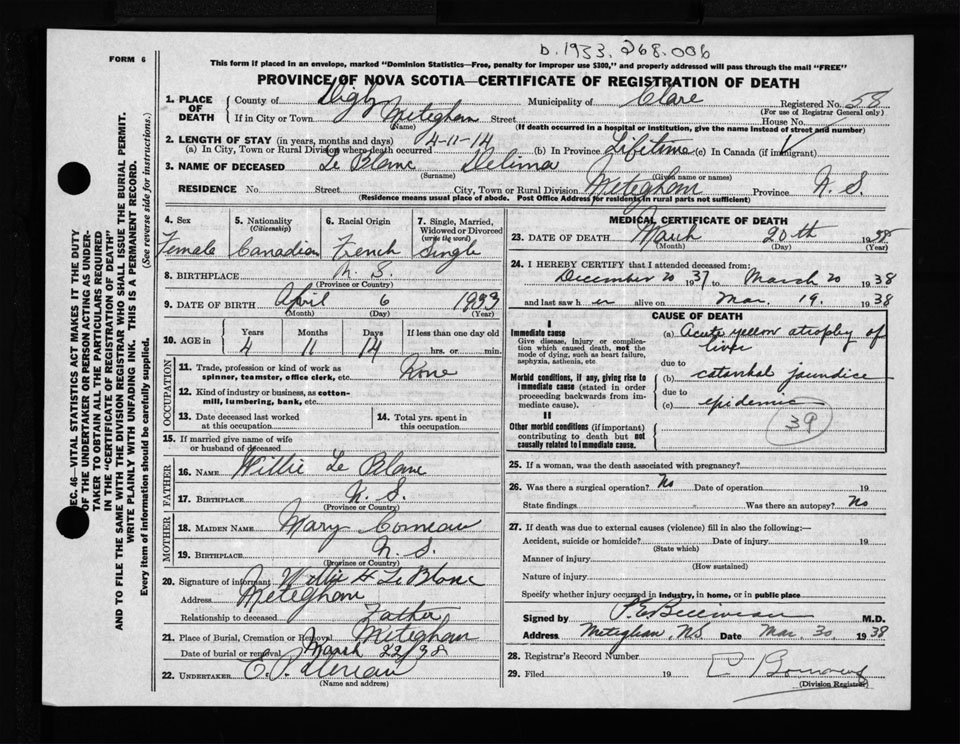 D. 1933. 268.006
FORM 6
This form if placed in an envelope, marked "Dominion Statistics—Free, penalty for improper use $300," and properly addressed will pass through the mail "FREE"
PROVINCE OF NOVA SCOTIA—CERTIFICATE OF REGISTRATION OF DEATH
1. PLACE OF DEATH County of Digby Municipality of Clare Registered No. 58
(For use of Registrar General only)
If in City or Town Meteghan Street House No.
(Name) (If death occurred in a hospital or institution, give the name instead of street and number)
2. LENGTH OF STAY (in years, months and days) 4-11-14
(a) In City, Town or Rural Division where death occurred (b) In Province Lifetime (c) In Canada (if immigrant)
3. NAME OF DECEASED Le Blanc Delima
(Surname) (Given name or names)
RESIDENCE No. Street City, Town or Rural Division Meteghan Province N. S.
(Residence means usual place of abode. Post Office Address for residents in rural parts not sufficient)
4. Sex 5. Nationality (Citizenship) 6. Racial Origin 7. Single, Married, Widowed or Divorced (write the word)
Female Canadian French Single
8. BIRTHPLACE N. S.
(Province or Country)
9. DATE OF BIRTH April 6 1933
(Month) (Day) (Year)
10. AGE in Years Months Days If less than one day old
4 11 14 hrs. or min.
OCCUPATION
11. Trade, profession or kind of work as spinner, teamster, office clerk, etc. None
12. Kind of industry or business, as cotton-mill, lumbering, bank, etc.
13. Date deceased last worked at this occupation 14. Total yrs. spent in this occupation
15. If married give name of wife or husband of deceased
FATHER
16. NAME Willie Le Blanc
17. BIRTHPLACE N. S.
(Province or Country)
MOTHER
18. MAIDEN NAME Mary Comeau
19. BIRTHPLACE N. S.
(Province or Country)
20. Signature of informant Willie H Le Blanc
Address Meteghan
Relationship to deceased Father
21. Place of Burial, Cremation or Removal Meteghan
Date of burial or removal March 22/38
22. UNDERTAKER
(Name and Address)
MEDICAL CERTIFICATE OF DEATH
23. DATE OF DEATH March 20th 1938
(Month) (Day) (Year)
24. I HEREBY CERTIFY that I attended deceased from:
December 20 1937 to March 20 1938
and last saw her alive on Mar. 19. 1938
CAUSE OF DEATH
I
Immediate cause (a) Acute yellow atrophy of
Give disease, injury or complication which caused death, not the mode of dying, such as heart failure, asphyxia, asthenia, etc liver
due to
Morbid conditions, if any, giving rise to immediate cause (stated in order proceeding backwards from immediate cause). (b) catarrhal jaundice
due to
(c) epidemic
39
II
Other morbid conditions (if important) contributing to death but not causally related to immediate cause.
25. If a woman, was the death associated with pregnancy?
26. Was there a surgical operation? No Date of operation 19
State findings Was there an autopsy? No
27. If death was due to external causes (violence) fill in also the following:—
Accident, suicide or homicide? Date of injury 19
(State which)
Manner of injury
(How sustained)
Nature of injury
Specify whether injury occurred in industry, in home, or in public place
Signed by M.D.
Address Meteghan, NS Date Mar. 30 1938
28. Registrar's Record Number
29. Filed 19
(Division Registrar)
SEC. 46—VITAL STATISTICS ACT MAKES IT THE DUTY
OF THE UNDERTAKER OR PERSON ACTING AS UNDER-
TAKER TO OBTAIN ALL THE PARTICULARS REQUIRED
IN THE "CERTIFICATE OF REGISTRATION OF DEATH"
AND TO FILE THE SAME WITH THE DIVISION REGISTRAR WHO SHALL ISSUE THE BURIAL PERMIT.
WRITE PLAINLY WITH UNFADING INK. THIS IS A PERMANENT RECORD.
Every item of information should be carefully supplied. (See reverse side for instructions.)